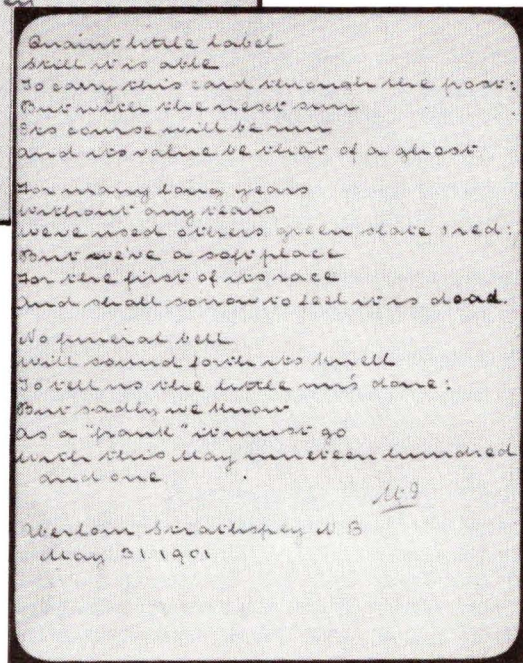 Quaint little label
Still it is able
To carry this card through the post:
But with the next sun
Its course will be run
And its value be that of a ghost.
For many long years
Without any tears
We've used others green slate & red:
But we've a soft place
For the first of its race
And shall sorrow to feel it is dead
No funeral bell
Will sound forth its knell
To tell us the little un's done:
But sadly we know
As a "frank" it must go
With this May nineteen hundred
and one
Aberlour Strathspey N.B
May 31 1901